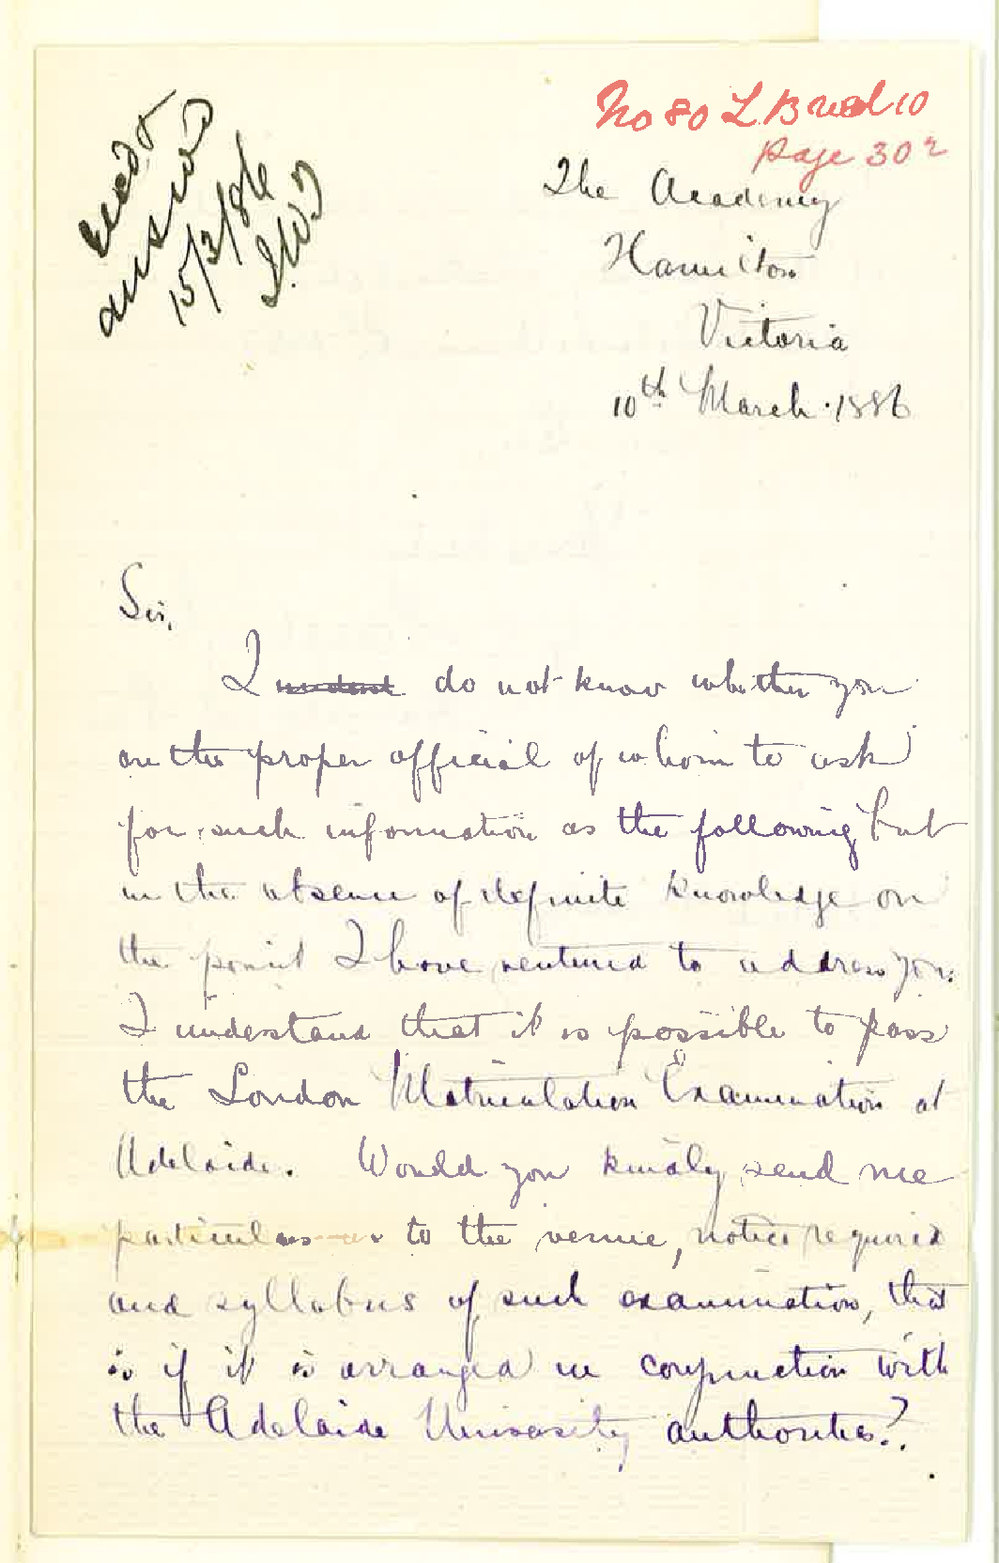 No 80 L.B
Page 302
recd &
answd
15/3/86
J.W.J
The Academy
Hamilton
Victoria
10th March. 1886
Sir,
I do not know whether you
are the proper official of whom to ask
for such information as the following but
in the absence of definite knowledge on
the point I have ventured to address you.
I understand that it is possible to pass
the London Matriculation Examination at
Adelaide. Would you kindly send me
particulars as to the venue, notice required
and syllabus of such examination, that
is if it is arranged in conjunction with
the Adelaide University authorities?.